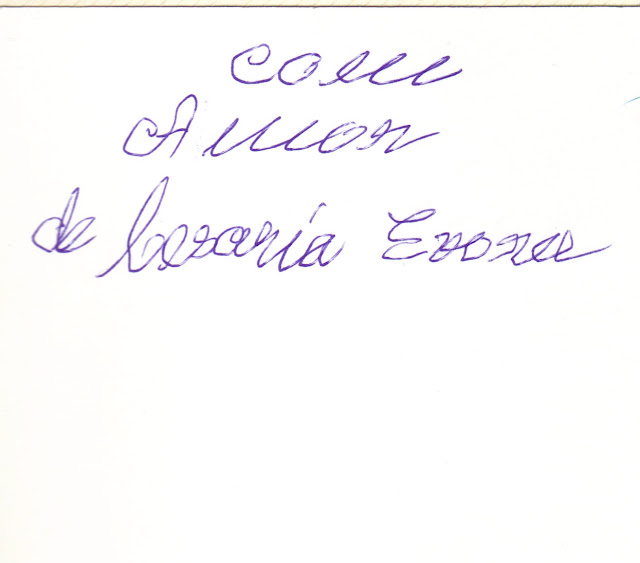 Com
Amor
de Cesaria Evora